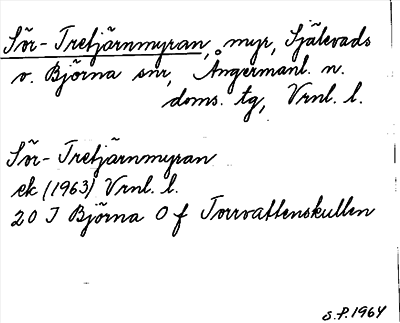 Sör-Tretjärnmyran, myr, Själevads
o. Björna snr, Ångermanl. n.
doms. tg, Vrnl. l.
Sör-Tretjärnmyran
ek (1963) Vrnl. l.
20 J Björna O f Torrvattenskullen
S.P. 1964